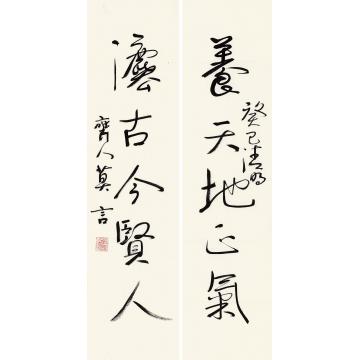 養天地正氣
癸巳清明
灋古今賢人
齊人莫言